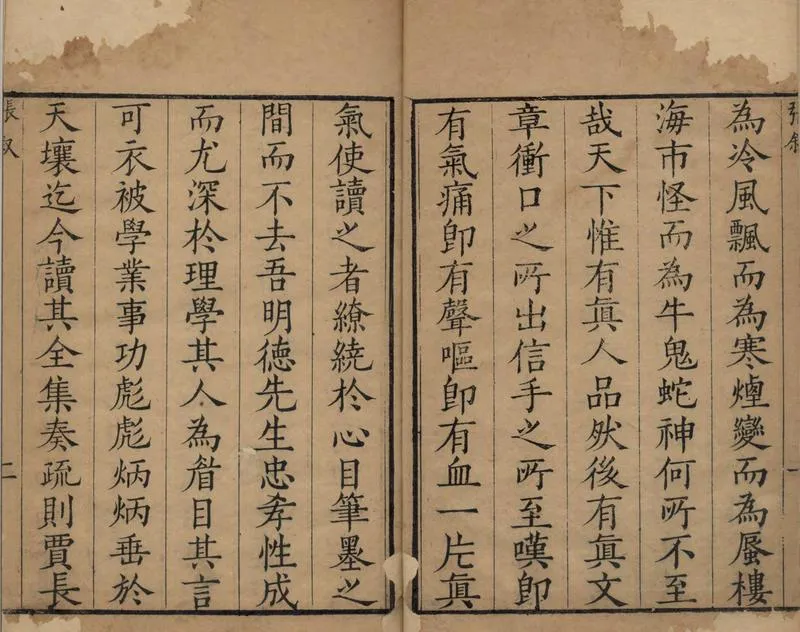 為冷風飄而為寒煙變而為蜃樓
海市怪而為牛鬼蛇神何所不至
哉天下惟有眞人品然後有眞文
章衝口之所出信手之所至嘆卽
有氣痛卽有聲嘔卽有血一片眞
氣使讀之者繚繞於心目筆墨之
間而不去吾明德先生忠孝性成
而尤深於理學其人為睂目其言
可衣被學業事功彪彪炳炳垂於
天壤迄今讀其全集奏疏則賈長
張叙
二